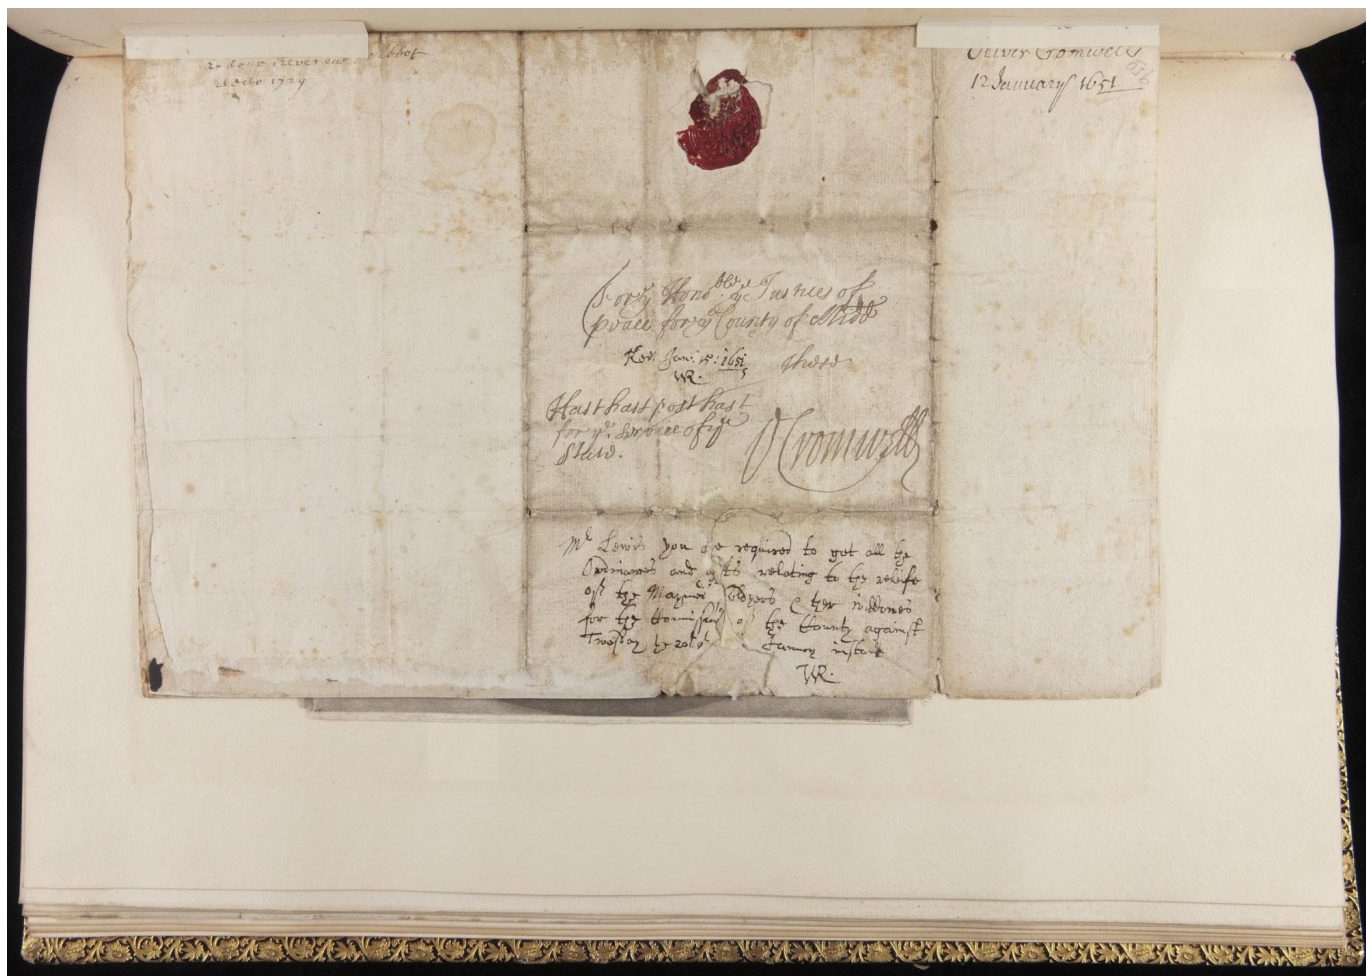 21 Octo 1729
Oliver Cromwell
12 January 1651
636
For ye Honoble ye Justices of
peace for ye County of Midd
Rec. Jan: 15: 1651
These
WR.
Hast hast post hast
for ye. service of ye
State.
O Cromwell
Mr Lewis you are required to get all the
Ordinances and acts relating to the releife
off the Maymed Soldyers & ther widdows
for the of the County against
Twesday the 20th January instant
WR.